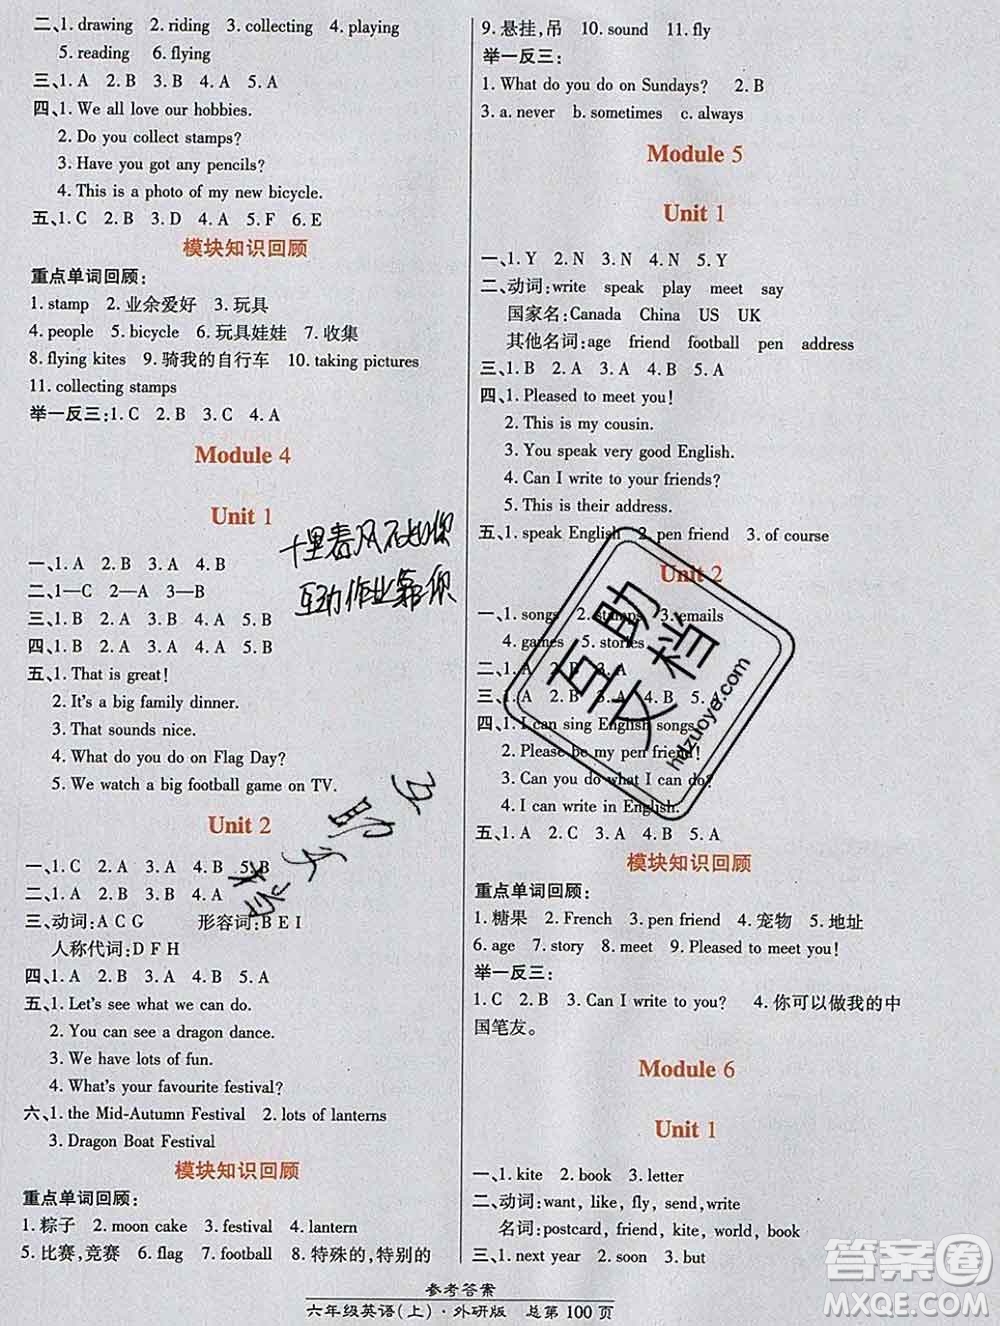 二、1. drawing 2. riding 3. collecting 4. playing
5. reading 6. flying
三、1. A 2. B 3. A 4. A 5. A
四、1. We all love our hobbies.
2. Do you collect stamps?
3. Have you got any pencils?
4. This is a photo of my new bicycle.
五、1. C 2. B 3. D 4. A 5. F 6. E
模块知识回顾
重点单词回顾：
1. stamp 2. 业余爱好 3. 玩具
4. people 5. bicycle 6. 玩具娃娃 7. 收集
8. flying kites 9. 骑我的自行车 10. taking pictures
11. collecting stamps
举一反三：1. C 2. B 3. C 4. A
Module 4
Unit 1
一、1. A 2. B 3. A 4. B
二、1—C 2—A 3—B
三、1. B 2. B 3. A 4. B 5. A
四、1. B 2. B 3. A 4. B 5. A
五、1. That is great!
2. It's a big family dinner.
3. That sounds nice.
4. What do you do on Flag Day?
5. We watch a big football game on TV.
Unit 2
一、1. C 2. A 3. A 4. B 5. B
二、1. A 2. B 3. B 4. A
三、动词：A C G 形容词：B E I
人称代词：D F H
四、1. A 2. B 3. B 4. B 5. A
五、1. Let's see what we can do.
2. You can see a dragon dance.
3. We have lots of fun.
4. What's your favourite festival?
六、1. the Mid-Autumn Festival 2. lots of lanterns
3. Dragon Boat Festival
模块知识回顾
重点单词回顾：
1. 粽子 2. moon cake 3. festival 4. lantern
5. 比赛,竞赛 6. flag 7. football 8. 特殊的,特别的
9. 悬挂,吊 10. sound 11. fly
举一反三：
1. What do you do on Sundays? 2. B
3. a. never b. sometimes c. always
Module 5
Unit 1
一、1. Y 2. N 3. N 4. N 5. Y
二、动词：write speak play meet say
国家名：Canada China US UK
其他名词：age friend football pen address
三、1. B 2. A 3. A 4. B 5. A
四、1. Pleased to meet you!
2. This is my cousin.
3. You speak very good English.
4. Can I write to your friends?
5. This is their address.
五、1. speak English 2. pen friend 3. of course
Unit 2
一、1. songs 2. stamps 3. emails
4. games 5. stories
二、1. A 2. A 3. B 4. B 5. A
三、1. A 2. B 3. A 4. B 5. A
四、1. I can sing English songs.
2. Please be my pen friend!
3. Can you do what I can do?
4. I can write in English.
五、1. A 2. C 3. A 4. B 5. A
模块知识回顾
重点单词回顾：
1. 糖果 2. French 3. pen friend 4. 宠物 5. 地址
6. age 7. story 8. meet 9. Pleased to meet you!
举一反三：
1. C 2. B 3. Can I write to you? 4. 你可以做我的中
国笔友。
Module 6
Unit 1
一、1. kite 2. book 3. letter
二、动词：want, like, fly, send, write
名词：postcard, friend, kite, world, book
三、1. next year 2. soon 3. but
十里春风不如你
互动作业帮你
互助文档
互助文档
hdzuoye.com
参考答案
六年级英语(上)·外研版 总第 100 页
答案圈
MXQE.COM